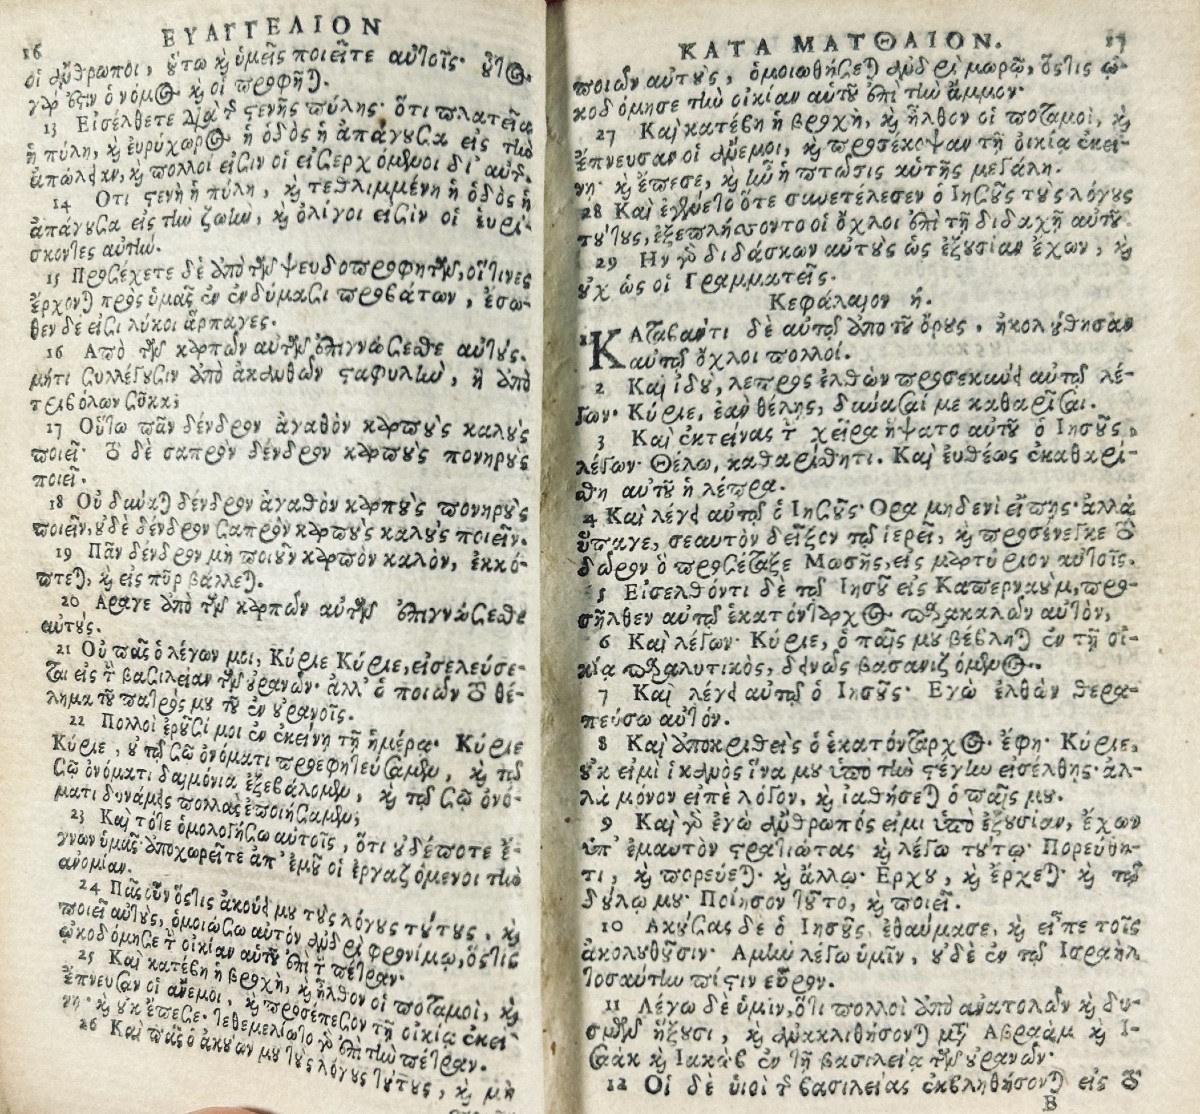 16 ΕΥΑΓΓΕΛΙΟΝ
οἱ ἄνθρωποι, οὕτω καὶ ὑμεῖς ποιεῖτε αὐτοῖς· οὗτος
γάρ ἐστιν ὁ νόμος καὶ οἱ προφῆται.
13 Εἰσέλθετε διὰ τῆς στενῆς πύλης· ὅτι πλατεῖα
ἡ πύλη, καὶ εὐρύχωρος ἡ ὁδὸς ἡ ἀπάγουσα εἰς τὴν
ἀπώλειαν, καὶ πολλοί εἰσιν οἱ εἰσερχόμενοι δι' αὐτῆς.
14 Ὅτι στενὴ ἡ πύλη, καὶ τεθλιμμένη ἡ ὁδὸς ἡ
ἀπάγουσα εἰς τὴν ζωὴν, καὶ ὀλίγοι εἰσὶν οἱ εὑρί-
σκοντες αὐτήν.
15 Προσέχετε δὲ ἀπὸ τῶν ψευδοπροφητῶν, οἵτινες
ἔρχονται πρὸς ὑμᾶς ἐν ἐνδύμασι προβάτων, ἔσω-
θεν δέ εἰσι λύκοι ἅρπαγες.
16 Ἀπὸ τῶν καρπῶν αὐτῶν ἐπιγνώσεσθε αὐτούς.
μήτι συλλέγουσιν ἀπὸ ἀκανθῶν σταφυλὴν, ἢ ἀπὸ
τριβόλων σῦκα;
17 Οὕτω πᾶν δένδρον ἀγαθὸν καρποὺς καλοὺς
ποιεῖ· τὸ δὲ σαπρὸν δένδρον καρποὺς πονηροὺς
ποιεῖ.
18 Οὐ δύναται δένδρον ἀγαθὸν καρποὺς πονηροὺς
ποιεῖν, οὐδὲ δένδρον σαπρὸν καρποὺς καλοὺς ποιεῖν.
19 Πᾶν δένδρον μὴ ποιοῦν καρπὸν καλὸν, ἐκκό-
πτεται, καὶ εἰς πῦρ βάλλεται.
20 Ἄραγε ἀπὸ τῶν καρπῶν αὐτῶν ἐπιγνώσεσθε
αὐτούς.
21 Οὐ πᾶς ὁ λέγων μοι, Κύριε Κύριε, εἰσελεύσε-
ται εἰς τὴν βασιλείαν τῶν οὐρανῶν· ἀλλ' ὁ ποιῶν τὸ θέ-
λημα τοῦ πατρός μου τοῦ ἐν οὐρανοῖς.
22 Πολλοὶ ἐροῦσί μοι ἐν ἐκείνῃ τῇ ἡμέρᾳ· Κύριε
Κύριε, οὐ τῷ σῷ ὀνόματι προεφητεύσαμεν, καὶ τῷ
σῷ ὀνόματι δαιμόνια ἐξεβάλομεν, καὶ τῷ σῷ ὀνό-
ματι δυνάμεις πολλὰς ἐποιήσαμεν;
23 Καὶ τότε ὁμολογήσω αὐτοῖς, ὅτι οὐδέποτε ἔ-
γνων ὑμᾶς· ἀποχωρεῖτε ἀπ' ἐμοῦ οἱ ἐργαζόμενοι τὴν
ἀνομίαν.
24 Πᾶς οὖν ὅστις ἀκούει μου τοὺς λόγους τούτους, καὶ
ποιεῖ αὐτοὺς, ὁμοιώσω αὐτὸν ἀνδρὶ φρονίμῳ, ὅστις
ᾠκοδόμησε τὴν οἰκίαν αὑτοῦ ἐπὶ τὴν πέτραν·
25 Καὶ κατέβη ἡ βροχὴ, καὶ ἦλθον οἱ ποταμοὶ, καὶ
ἔπνευσαν οἱ ἄνεμοι, καὶ προσέπεσον τῇ οἰκίᾳ ἐκεί-
νῃ· καὶ οὐκ ἔπεσε· τεθεμελίωτο γὰρ ἐπὶ τὴν πέτραν.
26 Καὶ πᾶς ὁ ἀκούων μου τοὺς λόγους τούτους, καὶ μὴ
ΚΑΤΑ ΜΑΤΘΑΙΟΝ. 17
ποιῶν αὐτοὺς, ὁμοιωθήσεται ἀνδρὶ μωρῷ, ὅστις ᾠ-
κοδόμησε τὴν οἰκίαν αὑτοῦ ἐπὶ τὴν ἄμμον·
27 Καὶ κατέβη ἡ βροχὴ, καὶ ἦλθον οἱ ποταμοὶ, καὶ
ἔπνευσαν οἱ ἄνεμοι, καὶ προσέκοψαν τῇ οἰκίᾳ ἐκεί-
νῃ· καὶ ἔπεσε, καὶ ἦν ἡ πτῶσις αὐτῆς μεγάλη.
28 Καὶ ἐγένετο ὅτε συνετέλεσεν ὁ Ἰησοῦς τοὺς λόγους
τούτους, ἐξεπλήσσοντο οἱ ὄχλοι ἐπὶ τῇ διδαχῇ αὐτοῦ.
29 Ἦν γὰρ διδάσκων αὐτοὺς ὡς ἐξουσίαν ἔχων, καὶ
οὐχ ὡς οἱ Γραμματεῖς.
Κεφάλαιον ή.
1 Καταβάντι δὲ αὐτῷ ἀπὸ τοῦ ὄρους, ἠκολούθησαν
αὐτῷ ὄχλοι πολλοί.
2 Καὶ ἰδοὺ, λεπρὸς ἐλθὼν προσεκύνει αὐτῷ λέ-
γων· Κύριε, ἐὰν θέλῃς, δύνασαί με καθαρίσαι.
3 Καὶ ἐκτείνας τὴν χεῖρα ἥψατο αὐτοῦ ὁ Ἰησοῦς,
λέγων· Θέλω, καθαρίσθητι. Καὶ εὐθέως ἐκαθαρί-
σθη αὐτοῦ ἡ λέπρα.
4 Καὶ λέγει αὐτῷ ὁ Ἰησοῦς· Ὅρα μηδενὶ εἴπῃς· ἀλλὰ
ὕπαγε, σεαυτὸν δεῖξον τῷ ἱερεῖ, καὶ προσένεγκε τὸ
δῶρον ὃ προσέταξε Μωσῆς, εἰς μαρτύριον αὐτοῖς.
5 Εἰσελθόντι δὲ τῷ Ἰησοῦ εἰς Καπερναοὺμ, προ-
σῆλθεν αὐτῷ ἑκατόνταρχος παρακαλῶν αὐτὸν,
6 Καὶ λέγων· Κύριε, ὁ παῖς μου βέβληται ἐν τῇ οἰ-
κίᾳ παραλυτικὸς, δεινῶς βασανιζόμενος.
7 Καὶ λέγει αὐτῷ ὁ Ἰησοῦς· Ἐγὼ ἐλθὼν θερα-
πεύσω αὐτόν.
8 Καὶ ἀποκριθεὶς ὁ ἑκατόνταρχος ἔφη· Κύριε,
οὐκ εἰμὶ ἱκανὸς ἵνα μου ὑπὸ τὴν στέγην εἰσέλθῃς· ἀλ-
λὰ μόνον εἰπὲ λόγον, καὶ ἰαθήσεται ὁ παῖς μου.
9 Καὶ γὰρ ἐγὼ ἄνθρωπός εἰμι ὑπὸ ἐξουσίαν, ἔχων
ὑπ' ἐμαυτὸν στρατιώτας· καὶ λέγω τούτῳ· Πορεύθη-
τι, καὶ πορεύεται· καὶ ἄλλῳ· Ἔρχου, καὶ ἔρχεται· καὶ τῷ
δούλῳ μου· Ποίησον τοῦτο, καὶ ποιεῖ.
10 Ἀκούσας δὲ ὁ Ἰησοῦς, ἐθαύμασε, καὶ εἶπε τοῖς
ἀκολουθοῦσιν· Ἀμὴν λέγω ὑμῖν, οὐδὲ ἐν τῷ Ἰσραὴλ
τοσαύτην πίστιν εὗρον.
11 Λέγω δὲ ὑμῖν, ὅτι πολλοὶ ἀπὸ ἀνατολῶν καὶ δυ-
σμῶν ἥξουσι, καὶ ἀνακλιθήσονται μετὰ Ἀβραὰμ καὶ Ἰ-
σαὰκ καὶ Ἰακὼβ ἐν τῇ βασιλείᾳ τῶν οὐρανῶν·
12 Οἱ δὲ υἱοὶ τῆς βασιλείας ἐκβληθήσονται εἰς τὸ
B